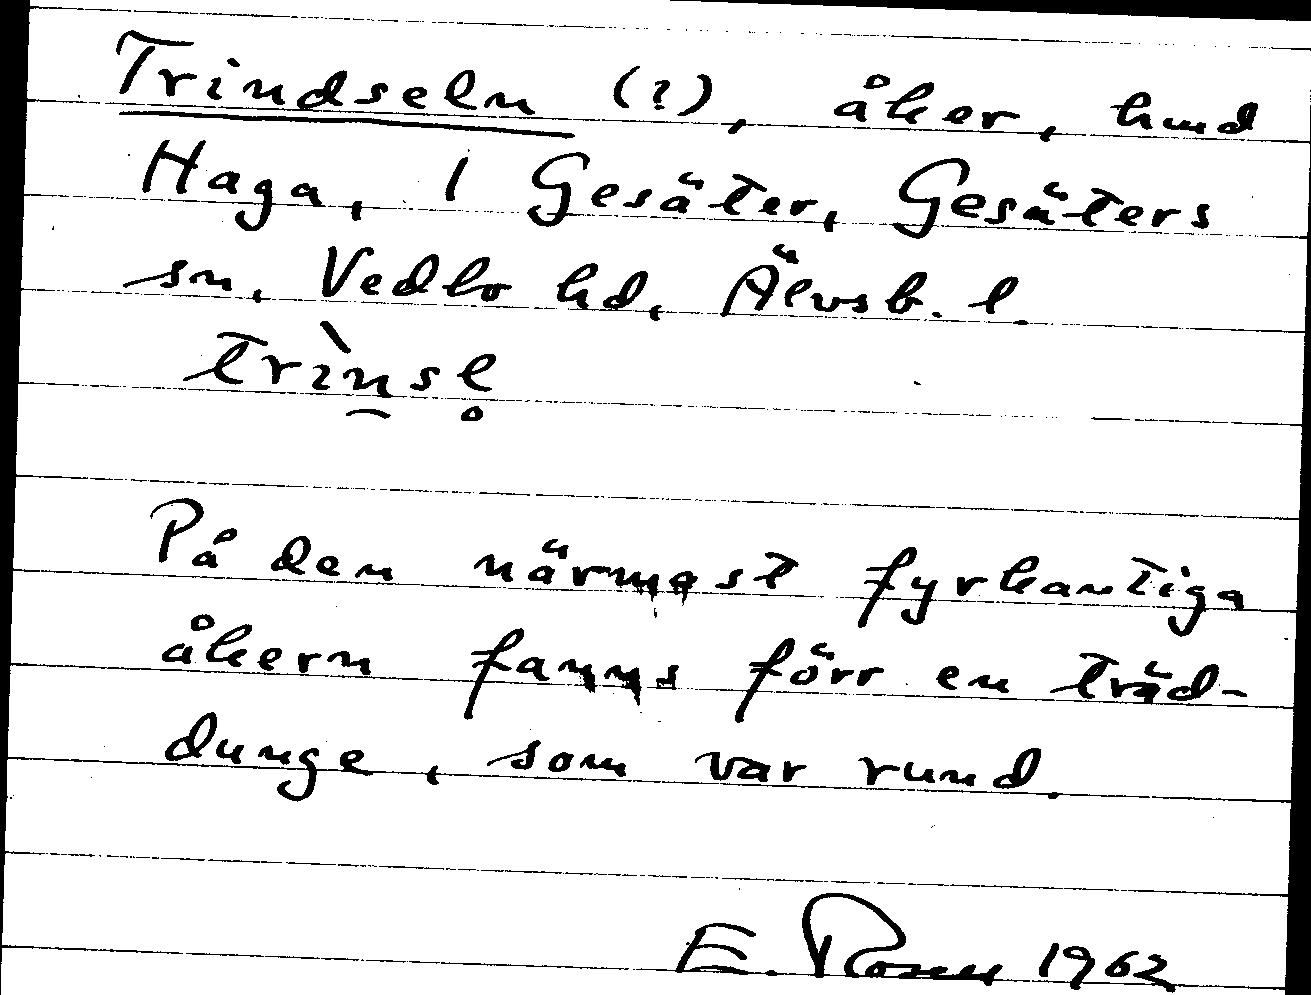 Trindseln (?), åker, hmd
Haga, 1 Gesäter, Gesäters
sn, Vedbo hd, Älvsb. l.
trìn̯sl̥
På den närmast fyrkantiga
åkern fanns förr en träd-
dunge, som var rund.
E. Rosen 1962